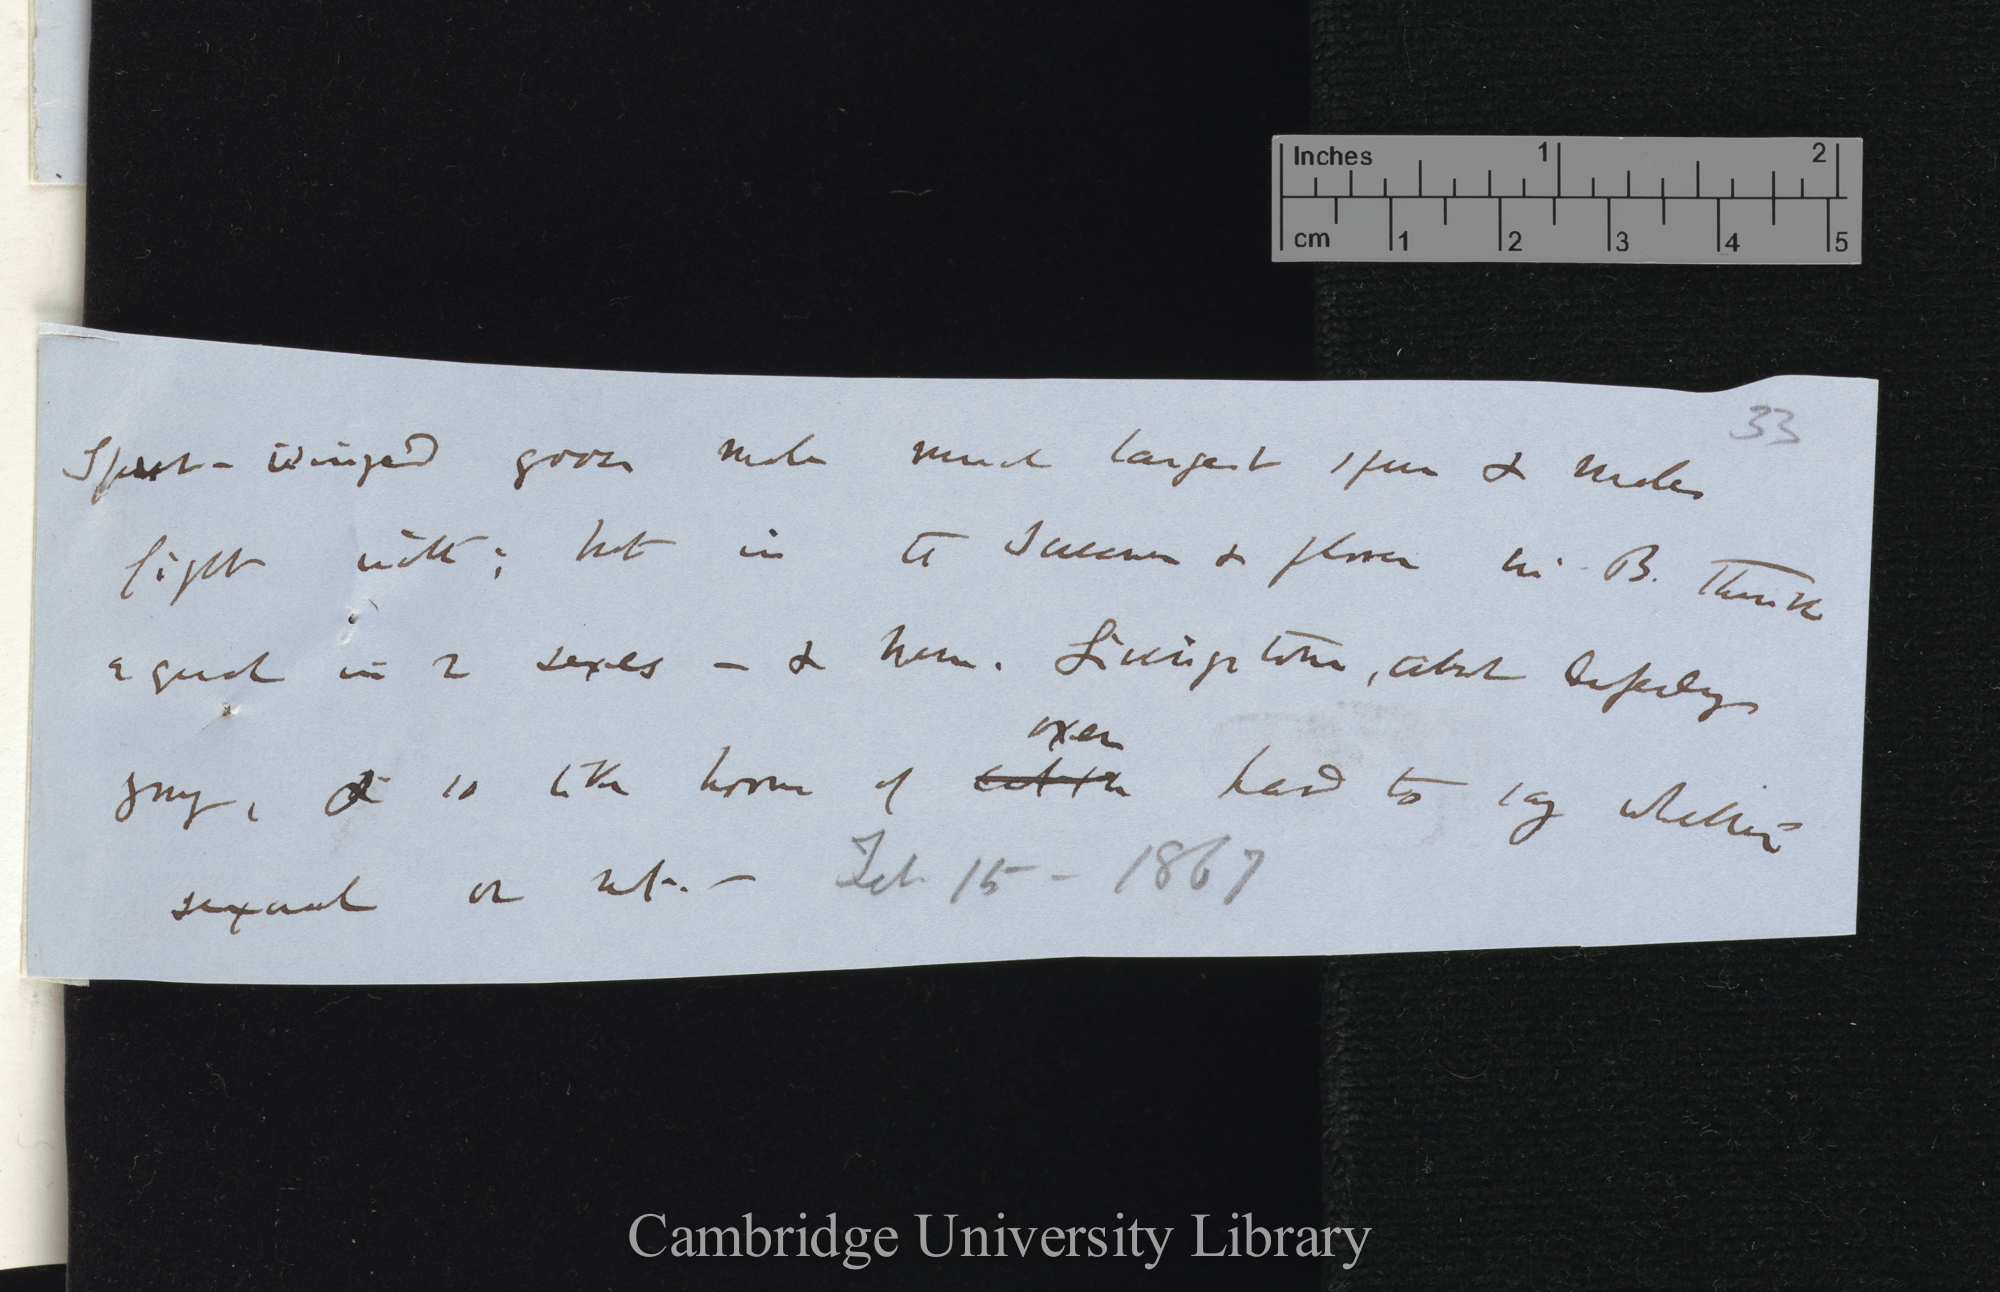 Inches 1 2
cm 1 2 3 4 5
33
Spur-winged goose male much largest spur & males
fight with; but in & plover in B. Think
equal in 2 sexes — & here. Livingstone, about defending
young, it is like horns of cattle oxen hard to say whether
sexual or not. — Feb 15 – 1867
Cambridge University Library